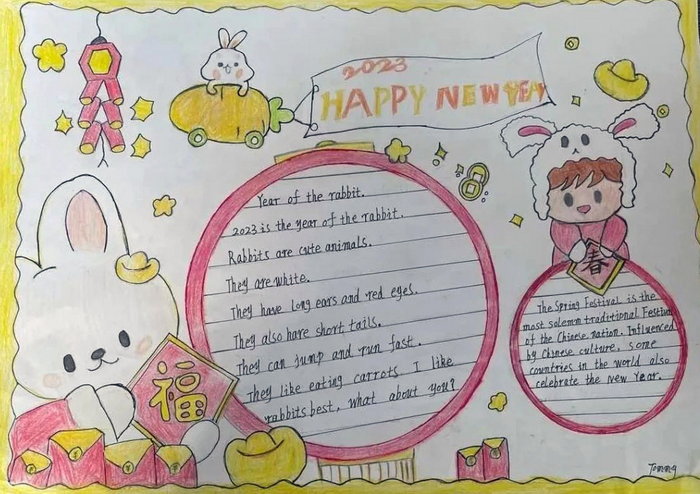 2023
HAPPY NEW YEAR
Year of the rabbit.
2023 is the year of the rabbit.
Rabbits are cute animals.
They are white.
They have long ears and red eyes.
They also have short tails.
They can jump and run fast.
They like eating carrots I like
rabbits best, what about you?
春
The Spring Festival is the
most solemn traditional Festival
of the Chinese nation. Influenced
by Chinese culture, some
countries in the world also
celebrate the New Year.
福
Tommy